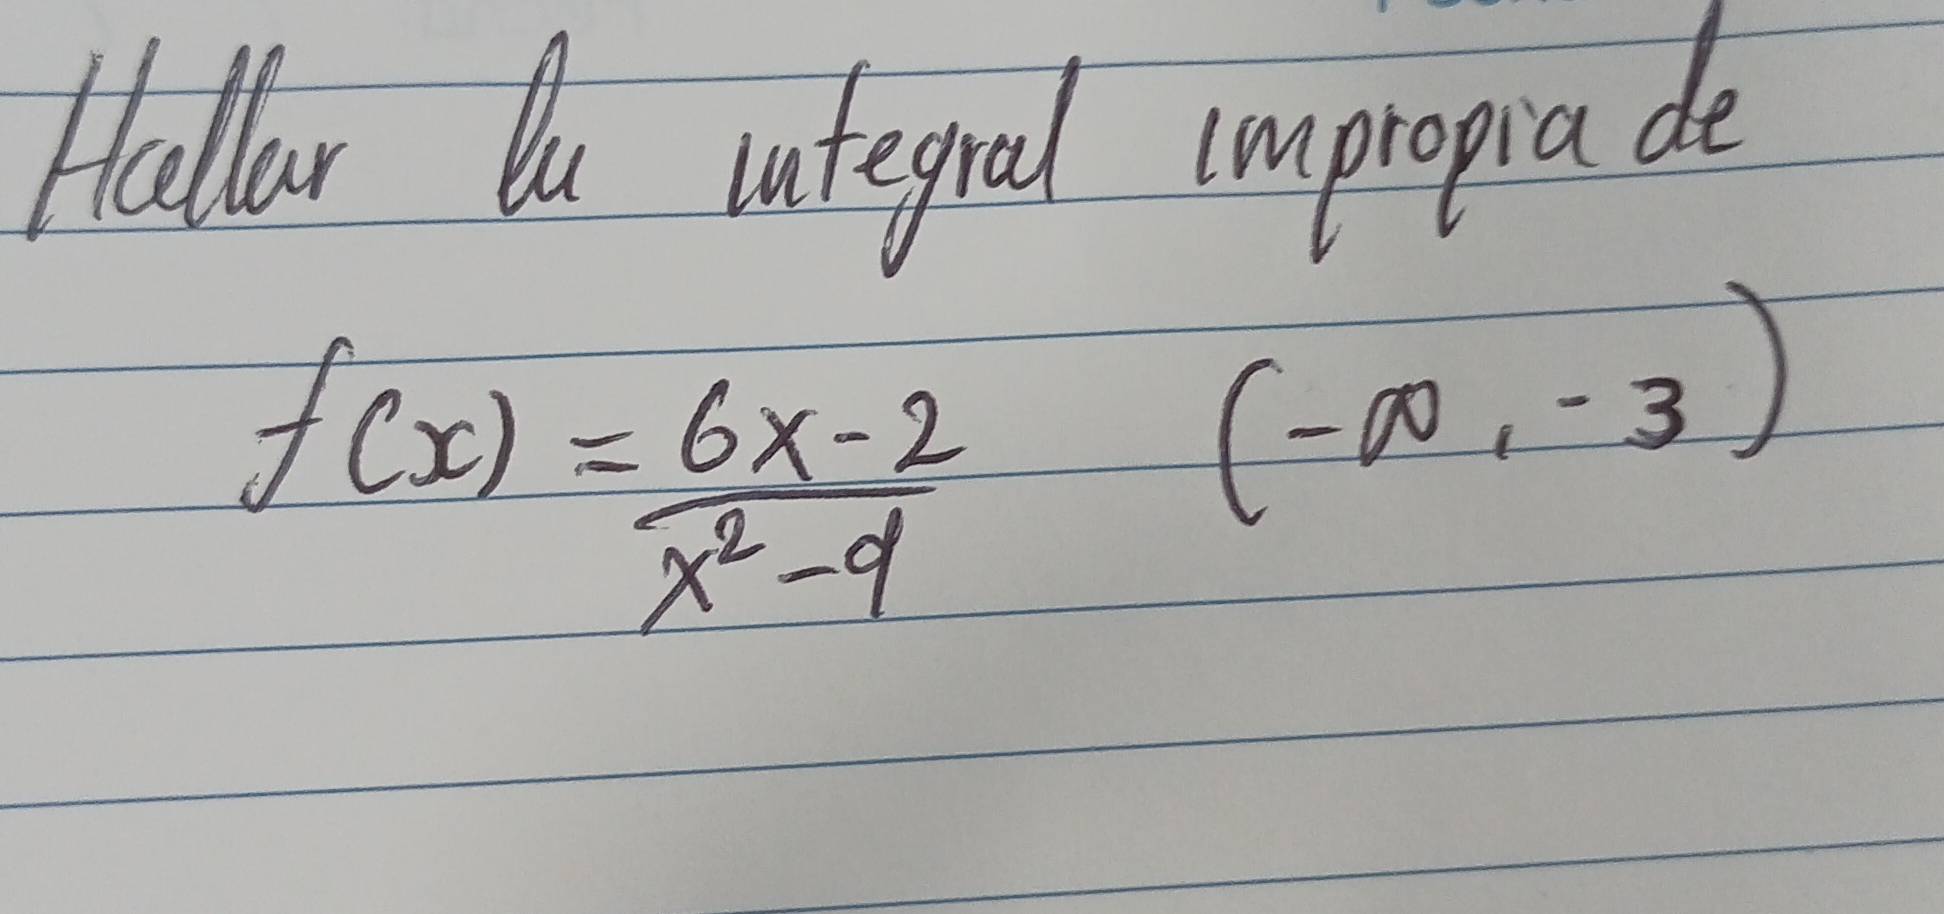 Hallar la integral impropia de
f(x) = 6x-2 / x² - 9 (-∞, -3)